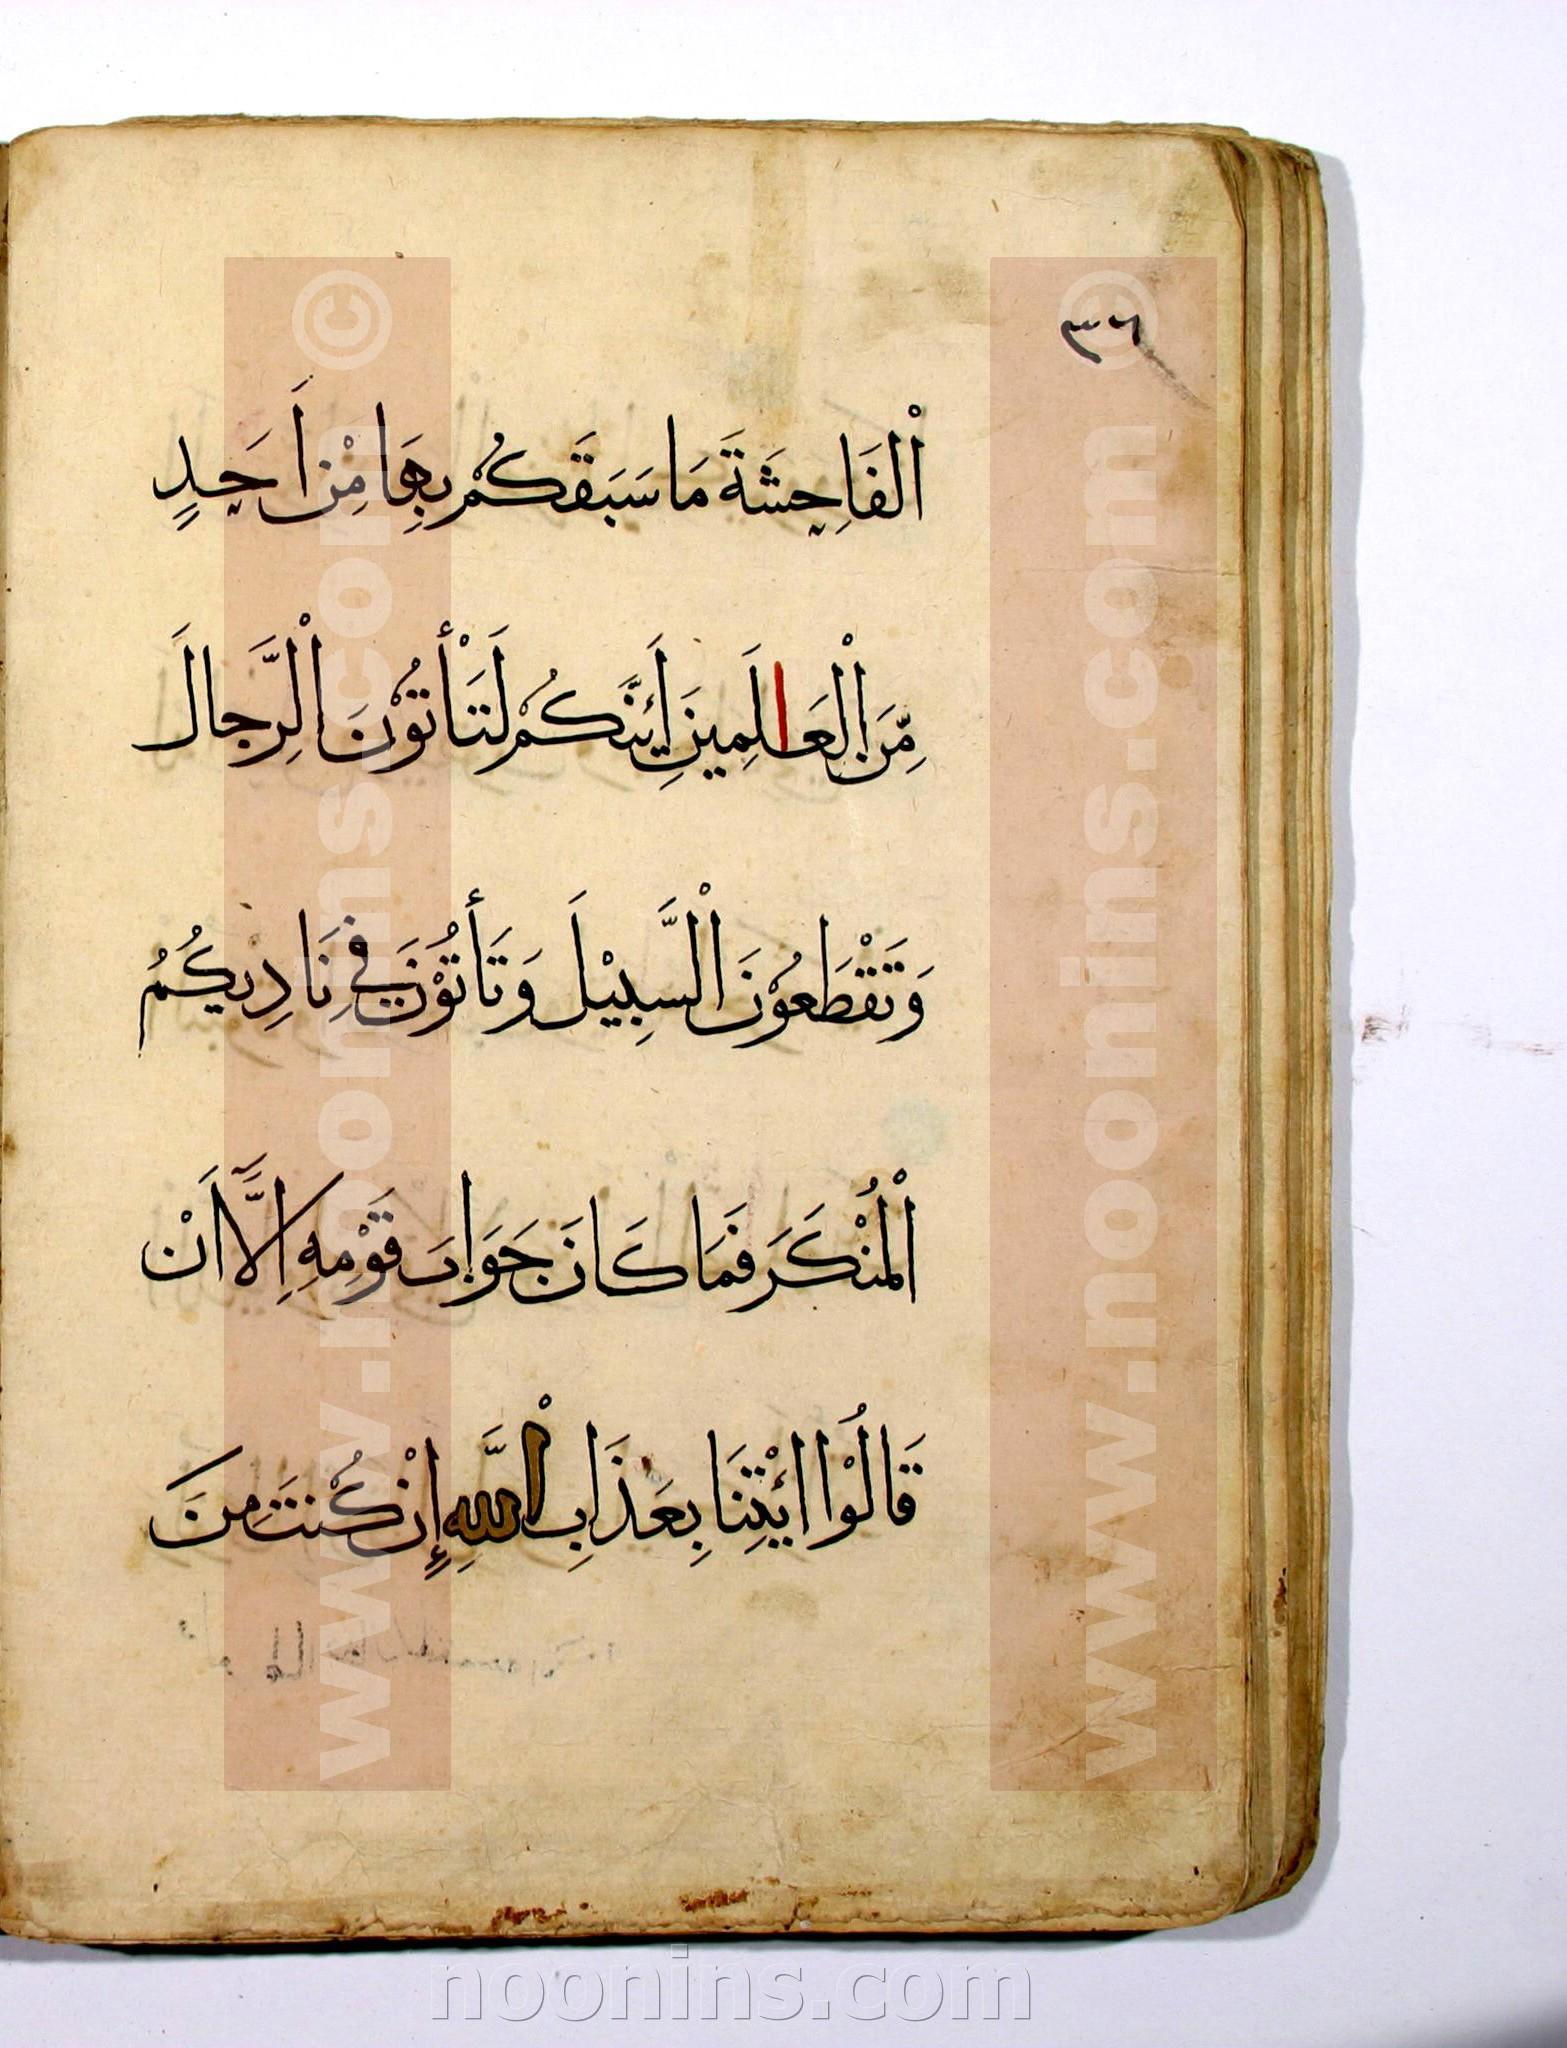 ٣٦
اْلفَاحِشَةَ مَا سَبَقَكُمْ بِهَا مِنْ اَحَدٍ
مِّنَ اْلعَالَمِينَ أَئِنَّكُمْ لَتَأْتُوْنَ اْلرِّجَالَ
وَتَقْطَعُوْنَ اْلسَّبِيْلَ وَتَأتُوْنَ فِي نَادِيكُمُ
اْلمُنْكَرَ فَمَا كَانَ جَوَابَ قَوْمِهِ اِلَّآ اَنْ
قَالُوْا ائْتِنَا بِعَذَابِ اْللَّهِ إِنْ كُنتَ مِنَ
www.noonins.com ©
www.noonins.com ©
noonins.com